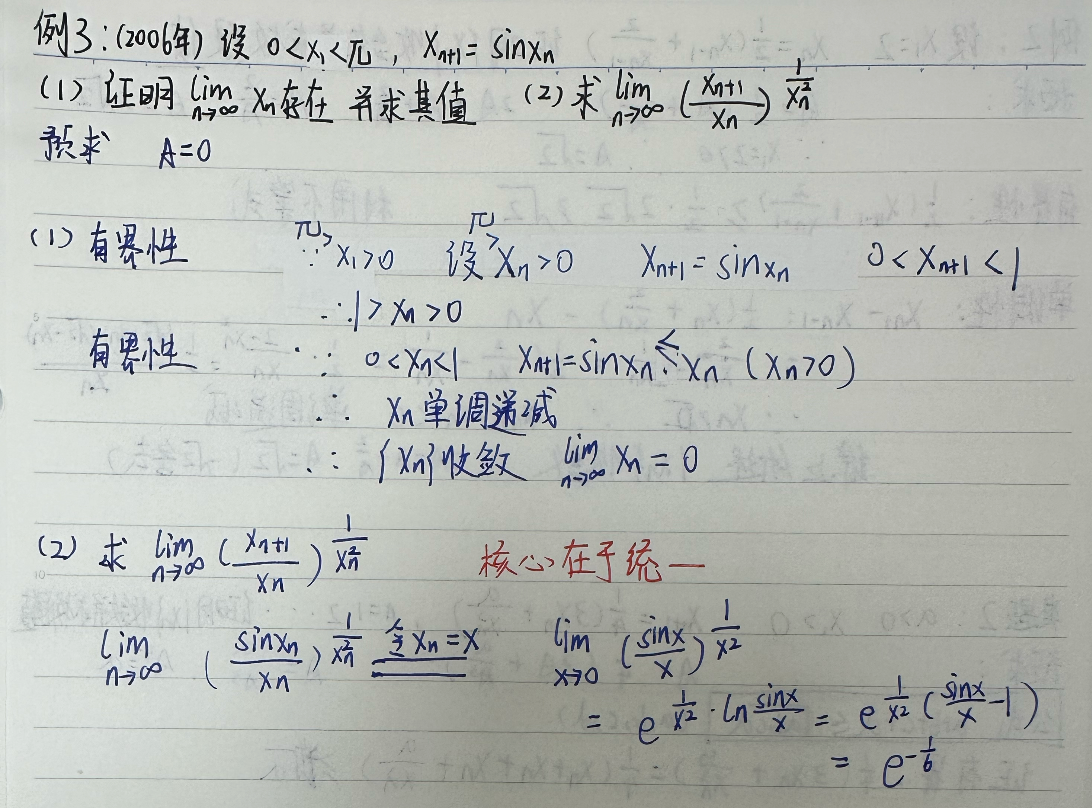 例3:(2006年) 设 0<x₁<π, xₙ₊₁ = sinxₙ
(1) 证明 lim n→∞ xₙ存在 并求其值 (2) 求 lim n→∞ (xₙ₊₁/xₙ)^(1/xₙ²)
预求 A=0
(1) 有界性 ∵ π>x₁>0 设 π>xₙ>0 xₙ₊₁ = sinxₙ 0<xₙ₊₁<1
∴ 1>xₙ>0
有界性 ∵ 0<xₙ<1 xₙ₊₁=sinxₙ ≤ xₙ (xₙ>0)
∴ xₙ 单调递减
∴ {xₙ}收敛 lim n→∞ xₙ = 0
(2) 求 lim n→∞ (xₙ₊₁/xₙ)^(1/xₙ²) 核心在于统一
lim n→∞ (sinxₙ/xₙ)^(1/xₙ²) 令xₙ=x = lim x→0 (sinx/x)^(1/x²)
= e^(1/x² · ln sinx/x) = e^(1/x² (sinx/x -1))
= e^(-1/6)